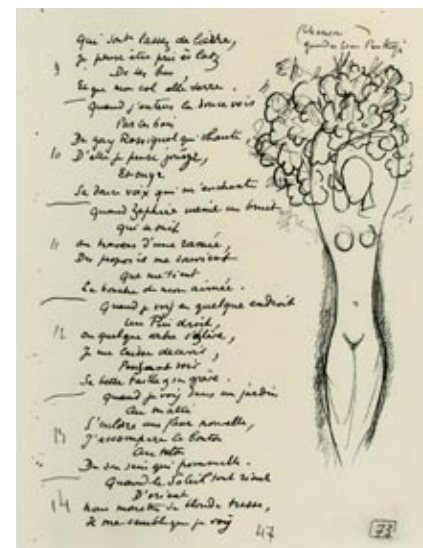 qui sont lassez de lierre,
9 Je pense être pris ès latz
De ses bras,
Et que mon col elle serre.
Quand j'entens la douce vois
Par les bois
Du gay Rossignol qui chante
10 D'elle je pense jouyr,
Et ouyr
Sa douce voix qui m'enchante
Quand Zephire meine un bruit
qui se suit
11 au travers d'une ramée,
Des propos il me souvient
Que me tient
La bouche de mon aimée.
Quand je voy en quelque endroit
un Pin droit,
12 ou quelque arbre s'élève,
Je me laisse decevoir,
Pensant voir
Sa belle taille et sa grève.
Quand je voy dans un jardin
Au matin
13 S'esclore une fleur nouvelle,
J'accompare le bouton
Au teton
De son sein qui pommelle.
Quand le Soleil tout riant
D'orient
14 Nous monstre sa blonde tresse,
Il me semble que je voy
47
Chanson
73